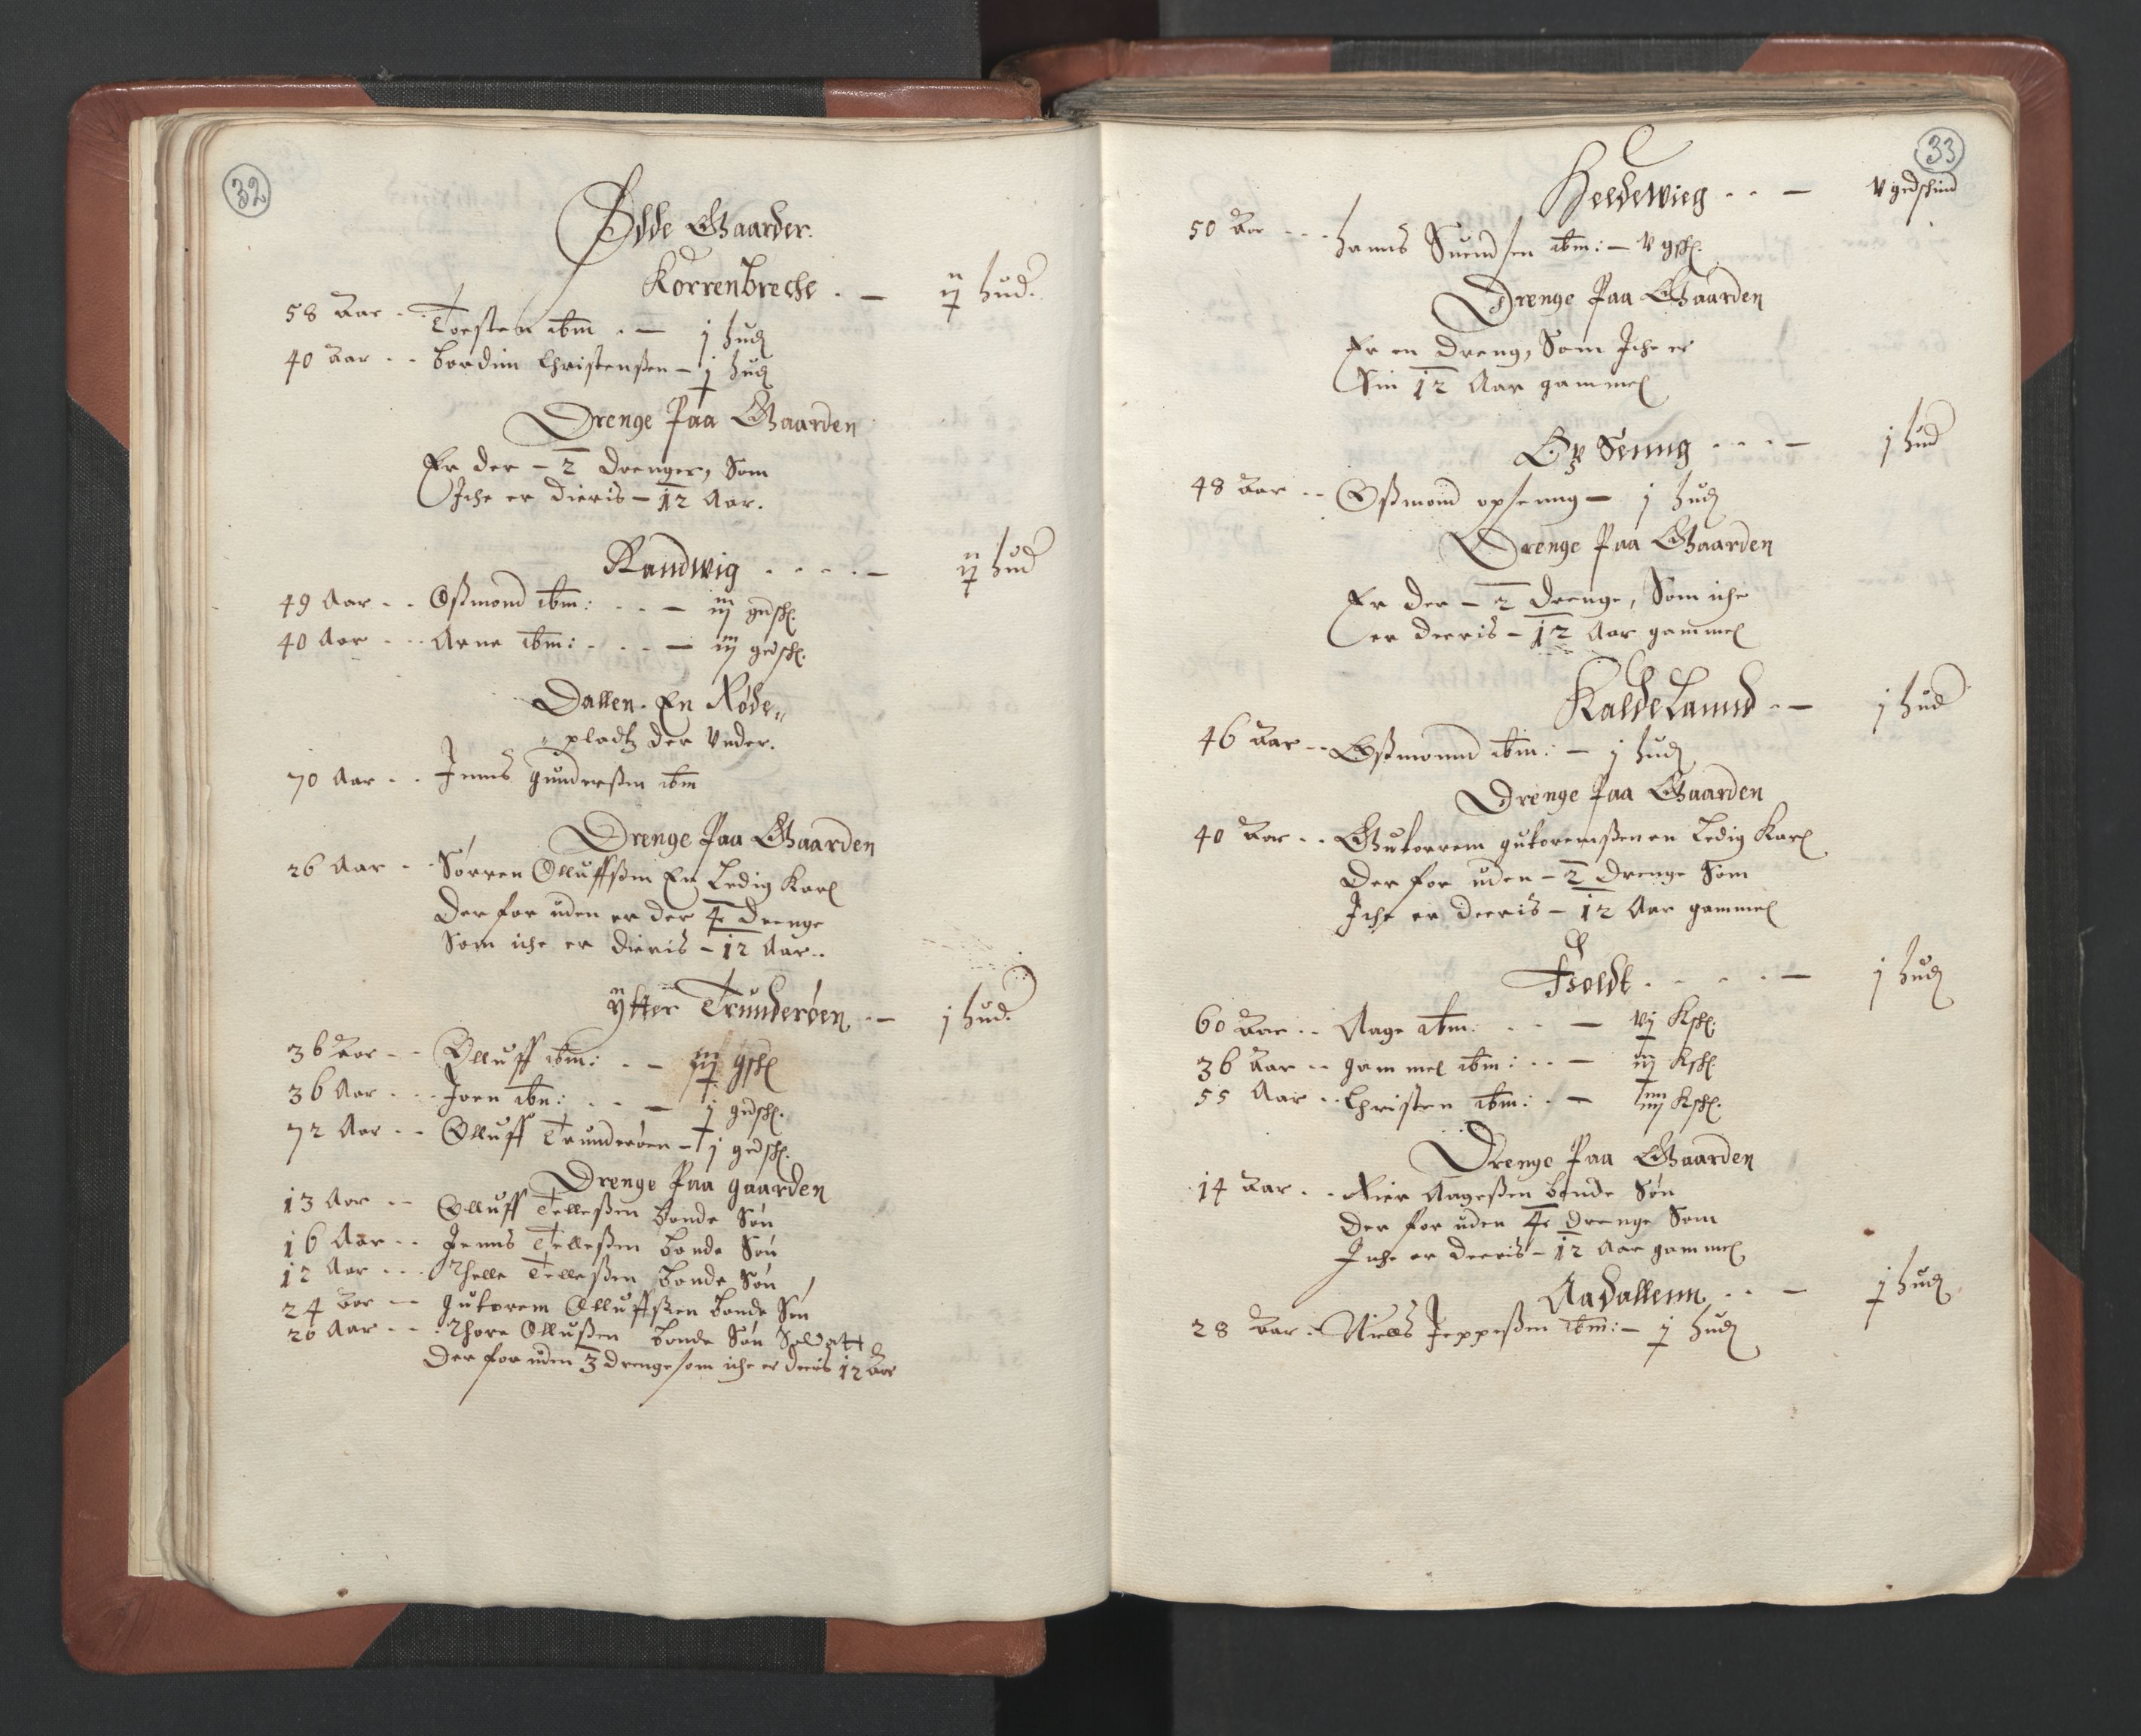 32
Ødde Gaarder.
Korrenbreche . — ij hud.
58 Aar .. Torsten ibm . — j hud
40 Aar .. Bordim Christensßen — j hud
Drenge Paa Gaarden
Er der — 2 drenger, Som
Iche er dieris — 12 Aar.
Randwig . . . . — ij hud
49 Aar .. Oßmond ibm: . . — iij gedsk.
40 Aar .. Arne ibm: . . . — iij gedsk.
Dallen. En Røde„
„ pladtz der Under.
70 Aar .. Jenns gunderßen ibm
Drenge Paa Gaarden
26 Aar .. Sørren Olluffßen En Ledig Karl
Der for uden er der 4 drenge
Som iche er dieris — 12 Aar..
Ÿtter Trunderøen .— j hud.
36 Aar .. Olluff ibm: . . — iij gsk
36 Aar .. Joen ibm: . . — j gedsk.
72 Aar .. Olluff Trunderøen — j gedsk.
Drenge Paa gaarden
13 Aar .. Olluff Telleßen bonde Søn
16 Aar .. Jenns Telleßen bonde Søn
12 Aar .. Thelle Telleßen bonde Søn
24 Aar — gutorem Olluffßen bonde Søn
20 Aar .. Thore Ollußen bonde Søn Soldatt
Der for uden 3 drenge som iche er deris 12 Aar
33
Heldewieg . . — V gedskind
50 Aar .. hanns Suendsen ibm: — V gsk.
Drenge Paa Gaarden
Er en dreng, Som Iche er
Sin 12 Aar gammel
Op Seung . . . — j hud
48 Aar .. Oßmond opseung — j hud
Drenge Paa Gaarden
Er der — 2 drenge, Som iche
er deeris — 12 Aar gammel
Kaldelaund .— j hud
46 Aar .. Oßmonnd ibm: — j hud
Drenge Paa Gaarden
40 Aar .. Guttorrem gutoremßen en Ledig Karl
Der for uden — 2 drenge Som
Iche er deeris — 12 Aar gammel
Fsoldt . . . . — j hud
60 Aar .. Aage ibm: . . — vj Ksk.
36 Aar .. gammel ibm: . . — iij Ksk.
55 Aar .. Christen ibm: . — iiij Ksk.
Drenge Paa Gaarden
14 Aar .. Rier Aageßen bonde Søn
Der for uden 4 drenge Som
Iche er deeris — 12 Aar gammel
Aadallenn . . — j hud
28 Aar . Niells Jeppeßen ibm: — j hud